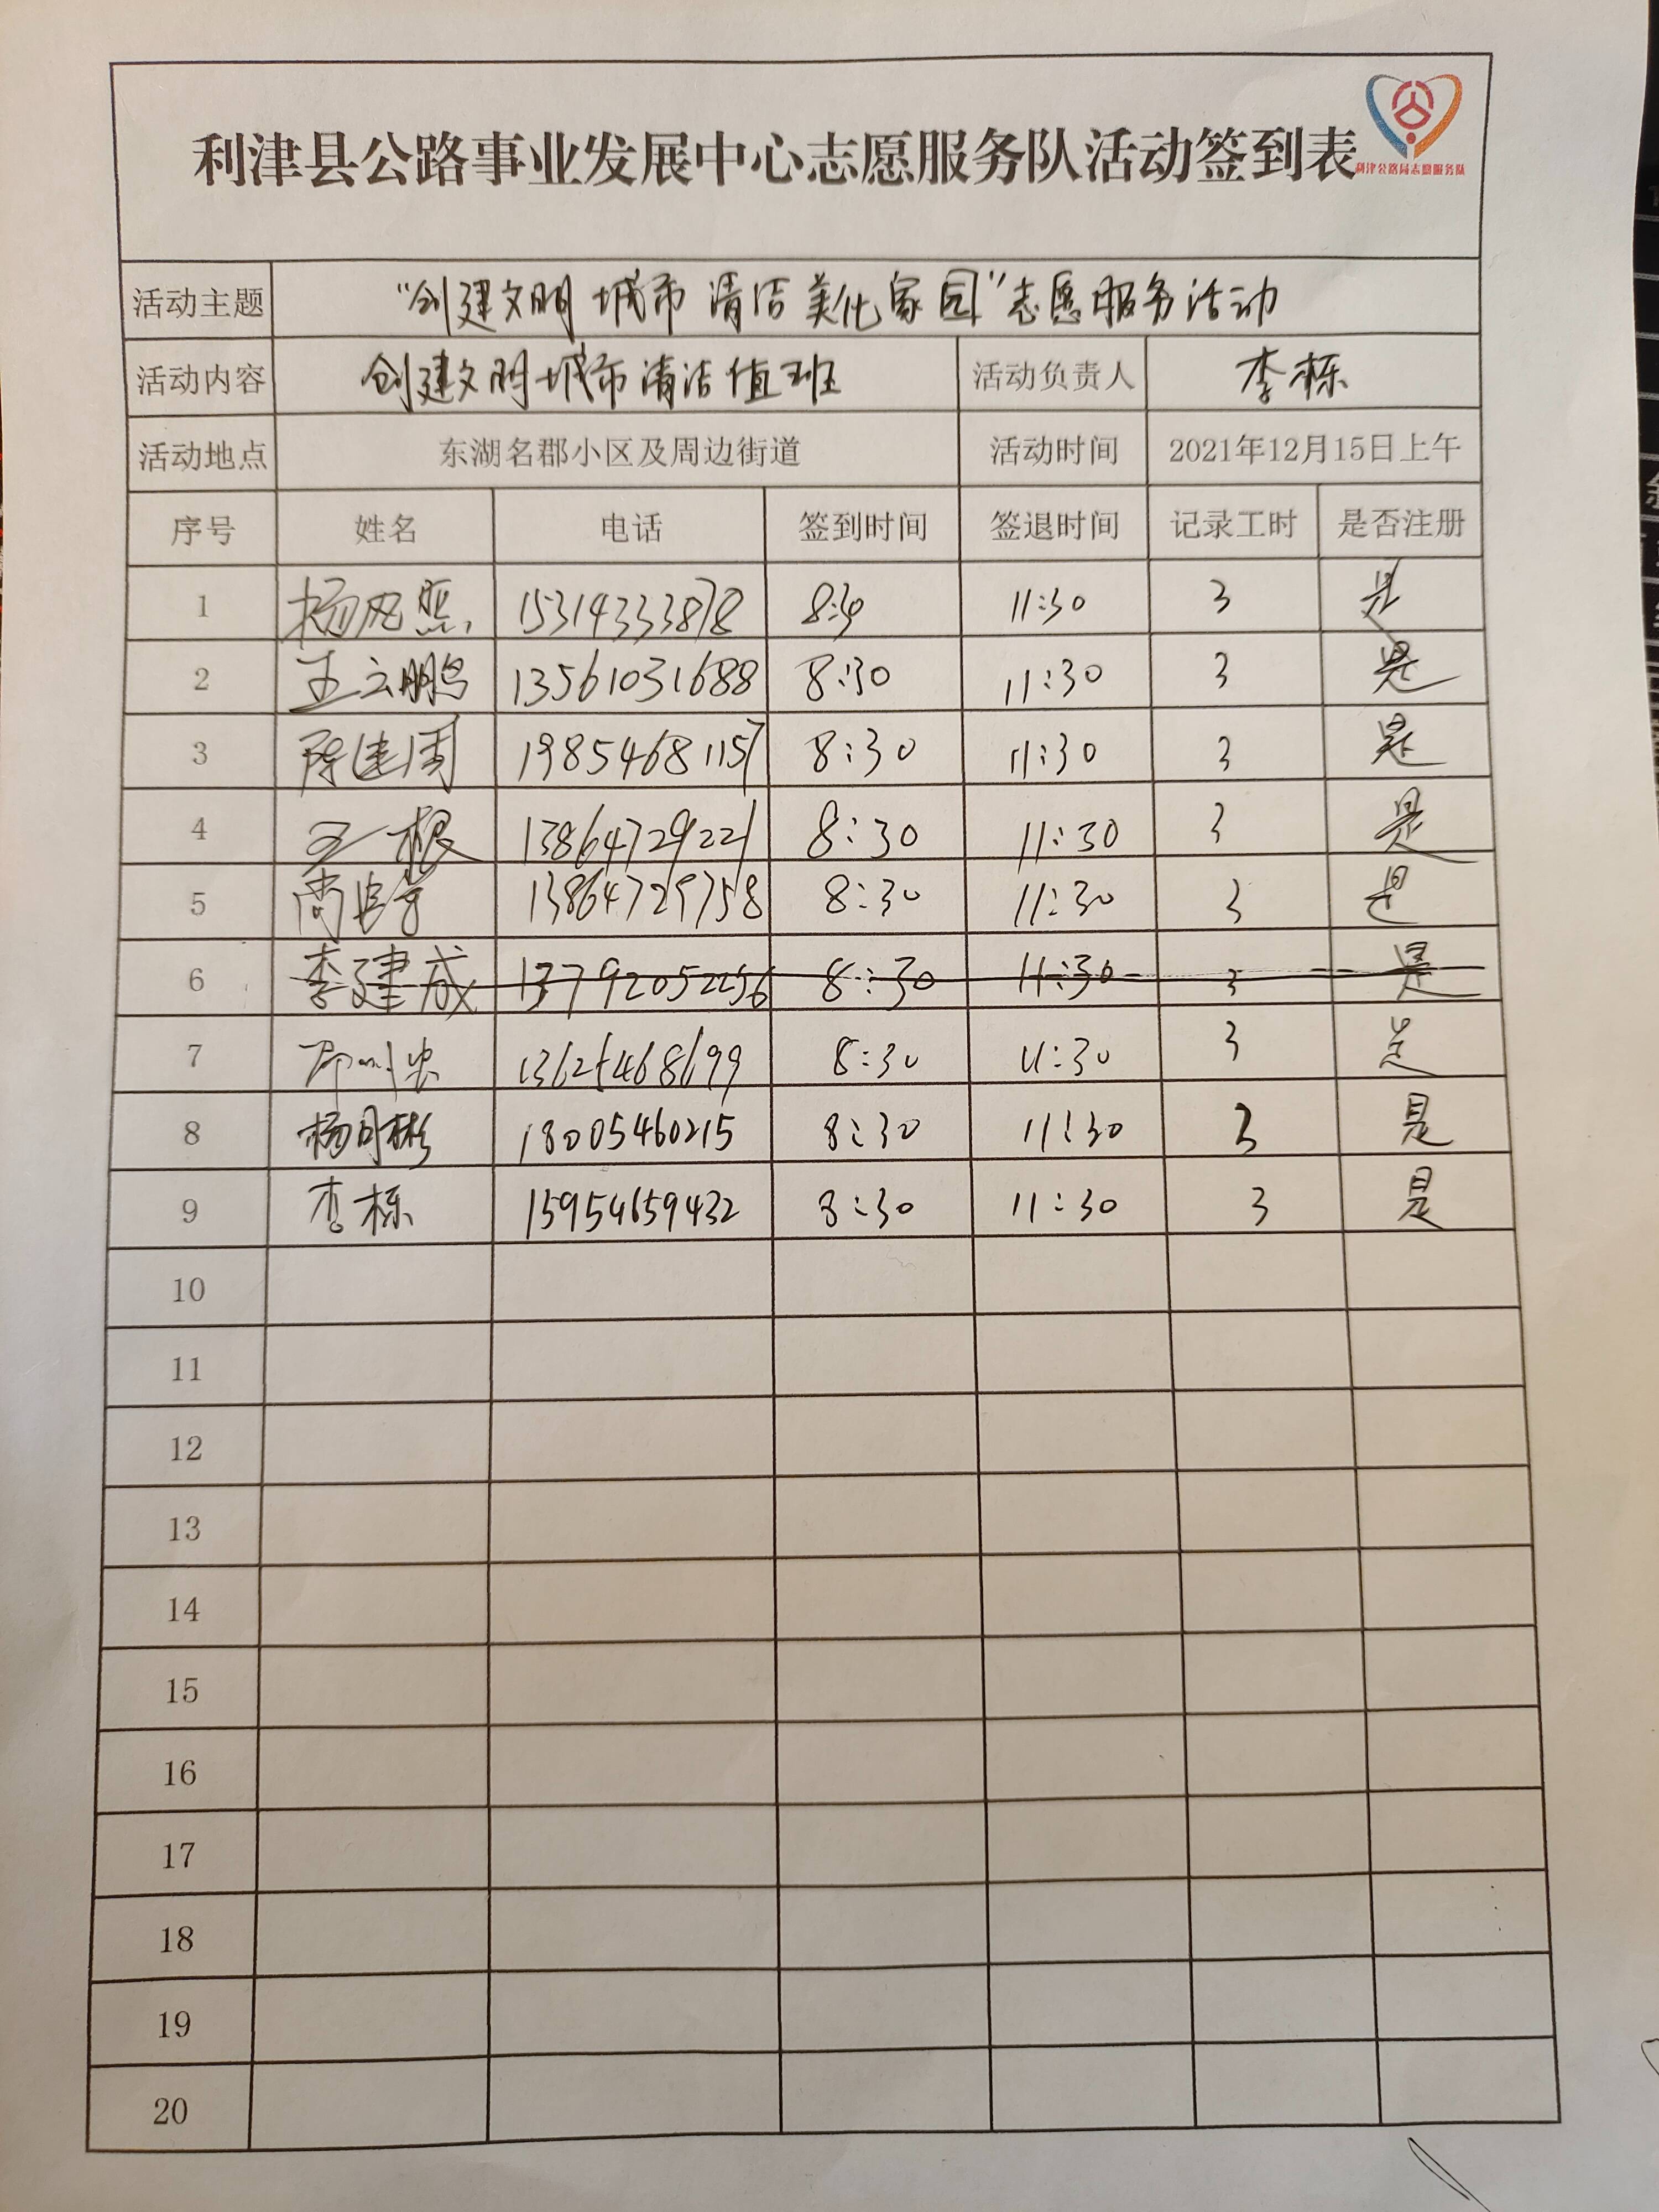 利津县公路事业发展中心志愿服务队活动签到表
利津公路局志愿服务队
活动主题 “创建文明城市 清洁美化家园”志愿服务活动
活动内容 创建文明城市清洁值班 活动负责人 李栋
活动地点 东湖名郡小区及周边街道 活动时间 2021年12月15日上午
序号 姓名 电话 签到时间 签退时间 记录工时 是否注册
1 15314333878 8:30 11:30 3 是
2 王云鹏 13561031688 8:30 11:30 3 是
3 陈建周 19854681157 8:30 11:30 3 是
4 王一根 13864729221 8:30 11:30 3 是
5 13864729758 8:30 11:30 3 是
6 李建成 13792052256 8:30 11:30 3 是
7 8:30 11:30 3 是
8 杨月彬 18005460215 8:30 11:30 3 是
9 李栋 15954659432 8:30 11:30 3 是
10
11
12
13
14
15
16
17
18
19
20